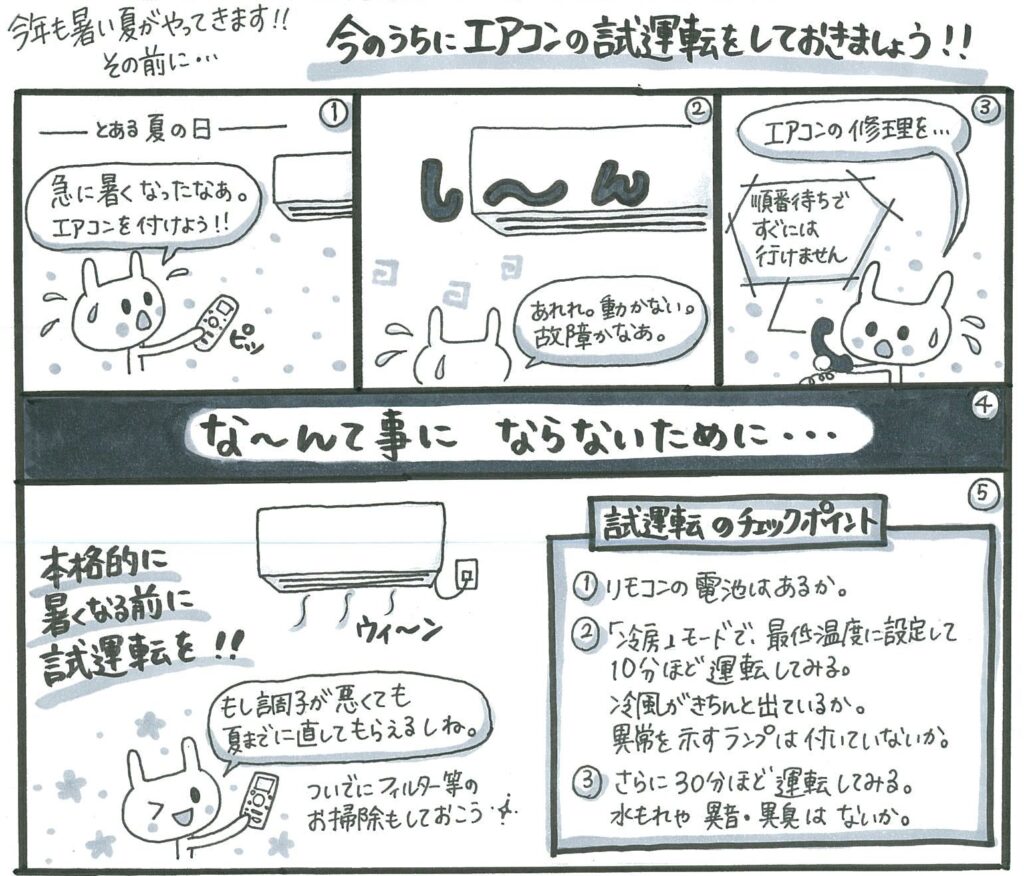 今年も暑い夏がやってきます!!
その前に…
今のうちにエアコンの試運転をしておきましょう!!
①
とある夏の日
急に暑くなったなぁ。
エアコンを付けよう!!
ピッ
②
し〜ん
あれれ。動かない。
故障かなぁ。
③
エアコンの修理を…
順番待ちで
すぐには
行けません
④
な〜んて事に ならないために・・・
⑤
本格的に
暑くなる前に
試運転を!!
ウィ〜ン
もし調子が悪くても
夏までに直してもらえるしね。
ついでにフィルター等の
お掃除もしておこう
試運転のチェックポイント
① リモコンの電池はあるか。
② 「冷房」モードで、最低温度に設定して
10分ほど運転してみる。
冷風がきちんと出ているか。
異常を示すランプは付いていないか。
③ さらに30分ほど運転してみる。
水もれや異音・異臭はないか。